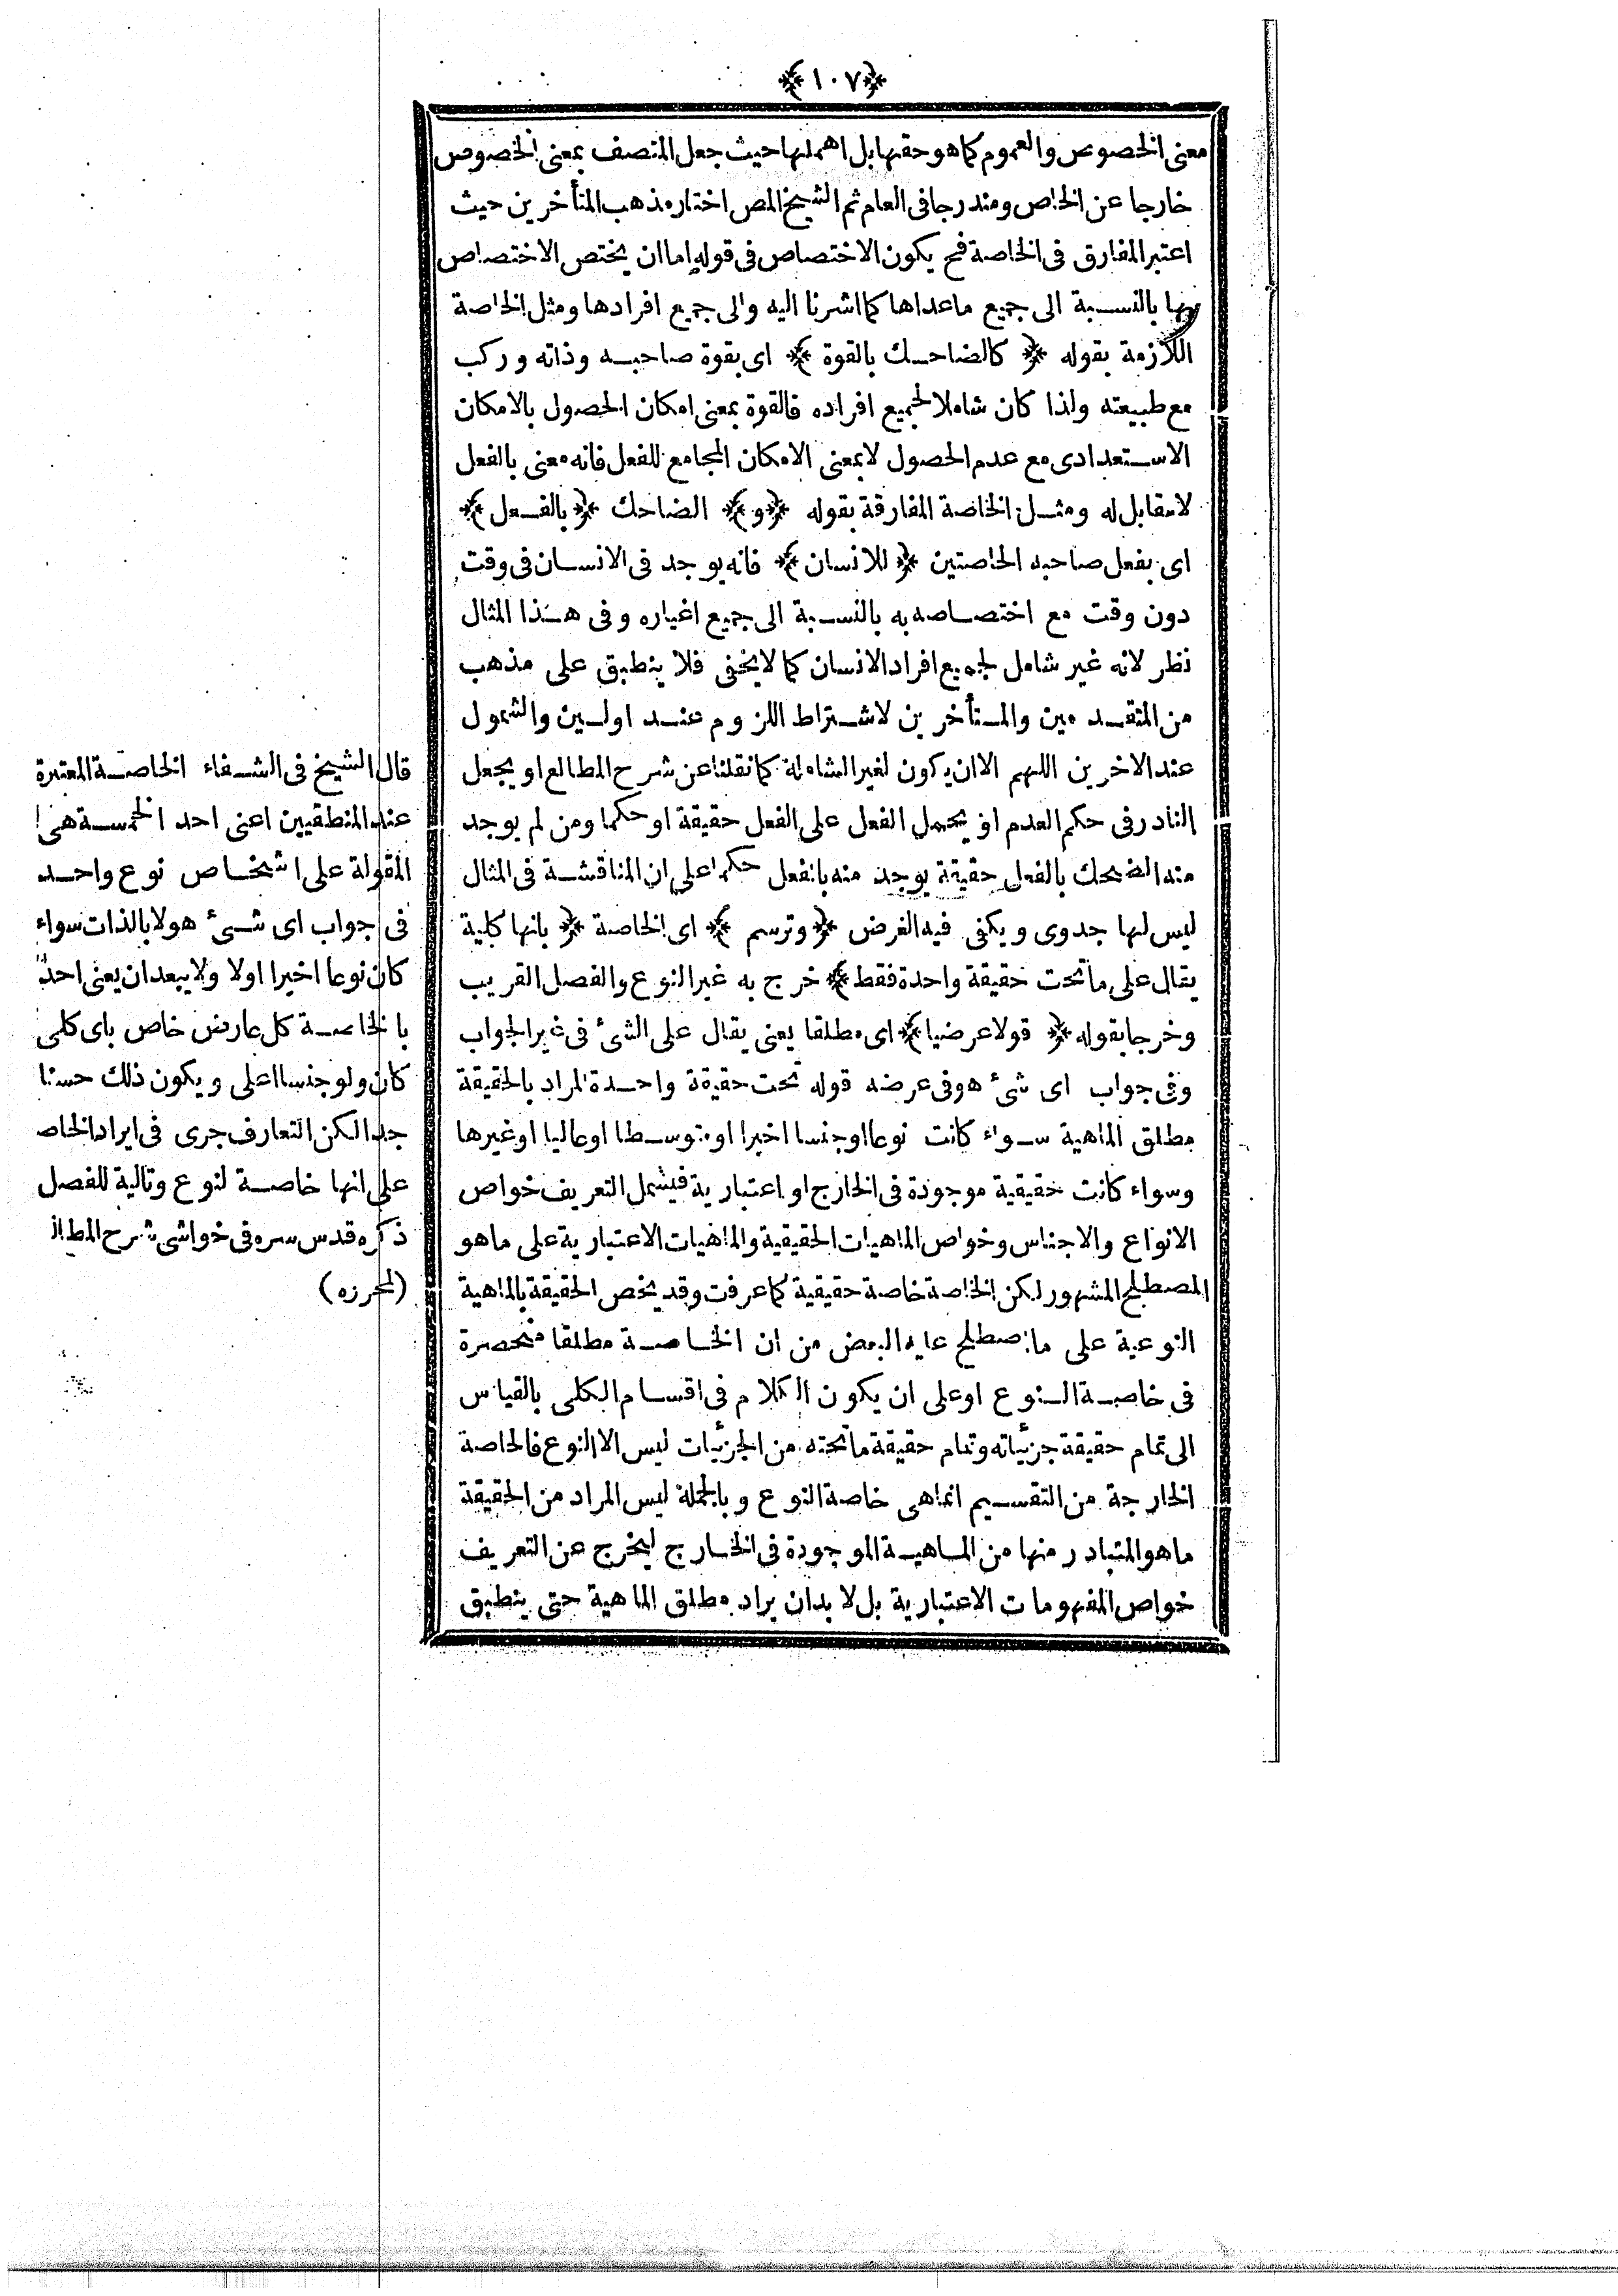 ﴿١٠٧﴾
معنى الخصوص والعموم كما هو حقها بل اهملها حيث جعل المتصف بمعنى الخصوص
خارجا عن الخاص ومندرجا فى العام ثم الشيخ المص اختاره مذهب المتأخرين حيث
اعتبر المفارق فى الخاصة فح يكون الاختصاص فى قوله اما ان يختص الاختصاص
بها بالنسبة الى جميع ماعداها كما اشرنا اليه والى جميع افرادها ومثل الخاصة
اللازمة بقوله ﴿ كالضاحك بالقوة ﴾ اى بقوة صاحبه وذاته وركب
مع طبيعته ولذا كان شاملا لجميع افراده فالقوة بمعنى امكان الحصول بالامكان
الاستعدادى مع عدم الحصول لا بمعنى الامكان المجامع للفعل فانه معنى بالفعل
لامقابل له ومثل الخاصة المفارقة بقوله ﴿و﴾ الضاحك ﴿ بالفعل ﴾
اى بفعل صاحبه الخاصتين ﴿ للانسان ﴾ فانه يوجد فى الانسان فى وقت
دون وقت مع اختصاصه به بالنسبة الى جميع اغياره وفى هذا المثال
نظر لانه غير شامل لجميع افراد الانسان كما لايخفى فلا ينطبق على مذهب
من المتقدمين والمتأخرين لاشتراط اللزوم عند اولين والشمول
عند الاخرين اللهم الا ان يكون لغير الشاملة كما نقلنا عن شرح المطالع او يجعل
النادر فى حكم العدم او يحمل الفعل على الفعل حقيقة او حكما ومن لم يوجد
منه الضحك بالفعل حقيقة يوجد منه بالفعل حكما على ان المناقشة فى المثال
ليس لها جدوى ويكفى فيه الفرض ﴿ وترسم ﴾ اى الخاصة ﴿ بانها كلية
يقال على ماتحت حقيقة واحدة فقط ﴾ خرج به غير النوع والفصل القريب
وخرجا بقوله ﴿ قولا عرضيا ﴾ اى مطلقا يعنى يقال على الشئ فى غير الجواب
وفى جواب اى شئ هو فى عرضه قوله تحت حقيقة واحدة المراد بالحقيقة
مطلق الماهية سواء كانت نوعا او جنسا اخيرا او متوسطا او عاليا او غيرها
وسواء كانت حقيقية موجودة فى الخارج او اعتبارية فيشمل التعريف خواص
الانواع والاجناس وخواص الماهيات الحقيقية والماهيات الاعتبارية على ماهو
المصطلح المشهور لكن الخاصة خاصة حقيقية كما عرفت وقد يخص الحقيقة بالماهية
النوعية على ما اصطلح عليه البعض من ان الخاصة مطلقا منحصرة
فى خاصة النوع او على ان يكون الكلام فى اقسام الكلى بالقياس
الى تمام حقيقة جزئياته وتمام حقيقة ماتحته من الجزئيات ليس الا النوع فالخاصة
الخارجة من التقسيم انما هى خاصة النوع وبالجملة ليس المراد من الحقيقة
ماهو المتبادر منها من الماهية الموجودة فى الخارج ليخرج عن التعريف
خواص المفهومات الاعتبارية بل لابد ان يراد مطلق الماهية حتى ينطبق
قال الشيخ فى الشفاء الخاصة المعتبرة
عند المنطقيين اعنى احد الخمسة هى
المقولة على اشخاص نوع واحد
فى جواب اى شئ هو لا بالذات سواء
كان نوعا اخيرا اولا ولايبعد ان يعنى احد
بالخاصة كل عارض خاص باى كلى
كان ولو جنسا اعلى ويكون ذلك حسنا
جدا لكن التعارف جرى فى ايراد الخاصة
على انها خاصة لنوع وتالية للفصل
ذكره قدس سره فى حواشى شرح المطالع
(لمحرره)